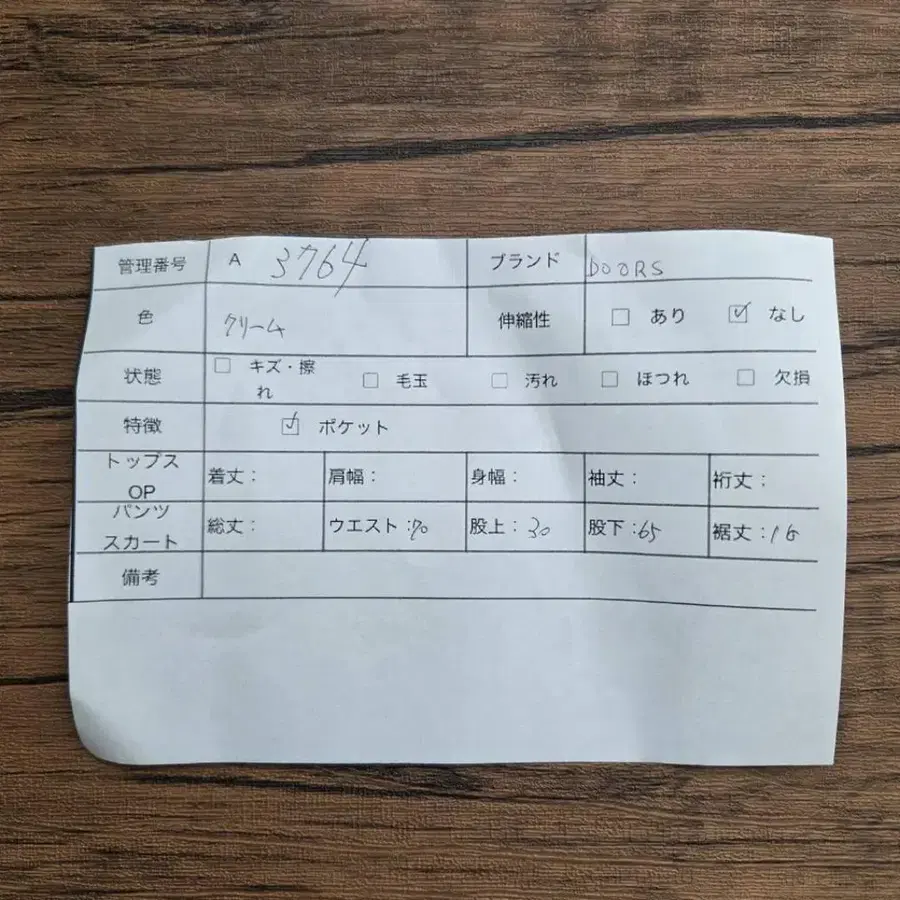 管理番号 A 3764 ブランド DOORS
色 クリーム 伸縮性 □ あり ☑ なし
状態 □ キズ・擦れ □ 毛玉 □ 汚れ □ ほつれ □ 欠損
特徴 ☑ ポケット
トップス OP 着丈： 肩幅： 身幅： 袖丈： 裄丈：
パンツ スカート 総丈： ウエスト：70 股上：30 股下：65 裾丈：16
備考